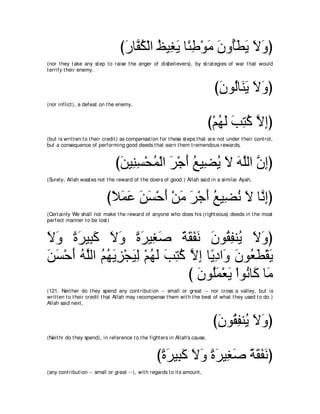 (وَلاَ يَطَأُونَ مَوْطِئًا يَغِيظُ الْكُفَّارَ)
(nor they take any step to raise the anger of disbelievers), by strategies of war that would
terrify their enemy,
(وَلاَ يَنَالُونَ)
(nor inflict), a defeat on the enemy,
(إِلاَّ كُتِبَ لَهُمْ)
(but is written to their credit) as compensation for these steps that are not under their control,
but a consequence of performing good deeds that earn them tremendous rewards,
(إِنَّ اللَّهَ لاَ يُضِيعُ أَجْرَ الْمُحْسِنِينَ)
(Surely, Allah wastes not the reward of the doers of good.) Allah said in a similar Ayah,
(إِنَّا لاَ نُضِيعُ أَجْرَ مَنْ أَحْسَنَ عَمَلاً)
(Certainly We shall not make the reward of anyone who does his (righteous) deeds in the most
perfect manner to be lost)
وَلاَ يُنفِقُونَ نَفَقَةً صَغِيرَةً وَلاَ كَبِيرَةً وَلاَ
يَقْطَعُونَ وَادِيًا إِلاَّ كُتِبَ لَهُمْ لِيَجْزِيَهُمُ اللَّهُ أَحْسَنَ
مَا كَانُواْ يَعْمَلُونَ )
(121. Neither do they spend any contribution -- small or great -- nor cross a valley, but is
written to their credit that Allah may recompense them with the best of what they used to do.)
Allah said next,
(وَلاَ يُنفِقُونَ)
(Neithr do they spend), in reference to the fighters in Allah's cause,
(نَفَقَةً صَغِيرَةً وَلاَ كَبِيرَةً)
(any contribution -- small or great --), with regards to its amount,